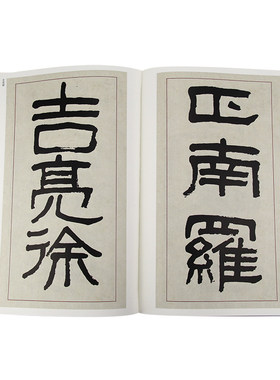 正南羅
吉亮徐